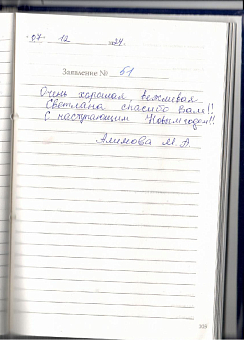 07 12 2024.
Заявление № 61
Очень хорошая, вежливая
Светлана спасибо Вам!!
С наступающим Новым годом!!
Алимова М. А.